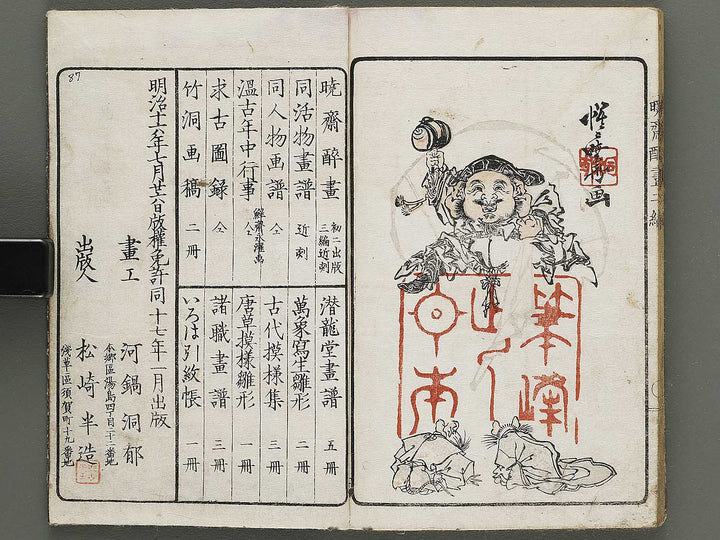 暁齋酔畫二編
惺々暁斎画
曉齋醉畫 初二出版 三編近刻
同活物畫譜 近刻
同人物画譜 仝
溫古年中行事 仝
求古圖錄 仝
竹洞画稿 二冊
潜龍堂畫譜 五冊
萬象寫生雛形 二冊
古代摸様集 三冊
唐草摸様雛形 一冊
諸職畫譜 三冊
いろは引紋帳 一冊
明治十六年七月廿六日版權免許同十七年一月出版
畫工
本郷區湯島四丁目二十二番地
河鍋洞郁
出版人
浅草區須賀町十九番地
松崎半造
87